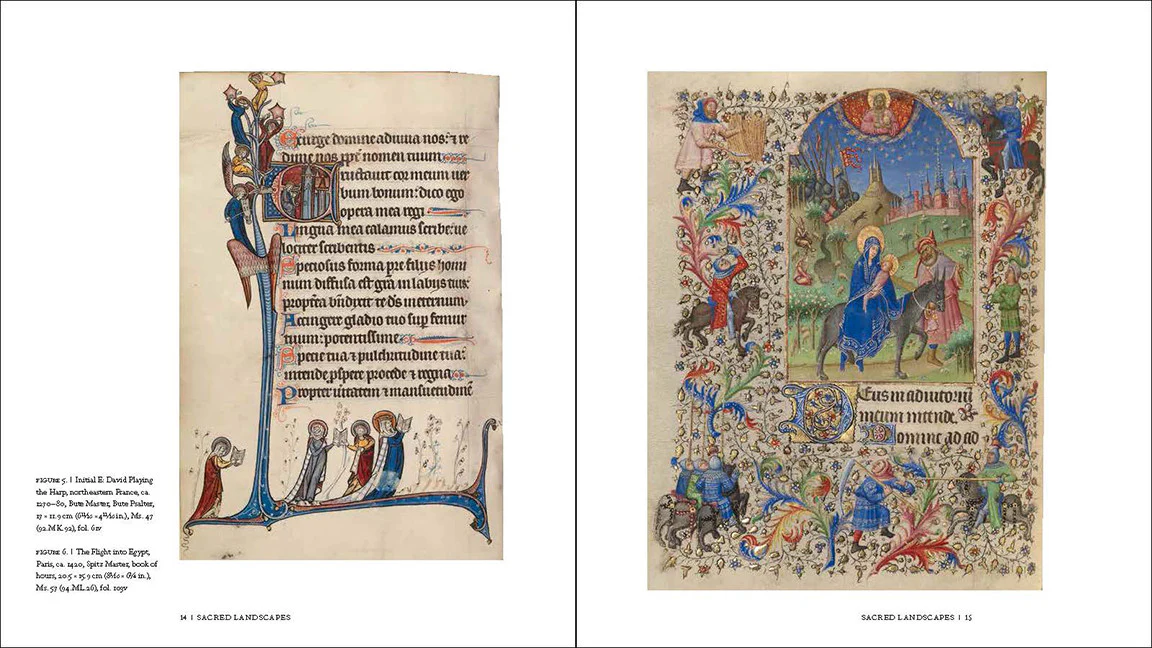 Exurge domine adiuua nos: ⁊ re
dime nos ppt̄ nomen tuum
Eructauit cor meum uer
bum bonum: dico ego
opera mea regi
Lingua mea calamus scribe ue
lociter scribentis
Speciosus forma pre filijs homi
num diffusa est gr̄a in labijs tuis
propt̄ea bn̄dixit te ds̄ in eternum
Accingere gladio tuo sup femur
tuum: potentissime
Specie tua ⁊ pulchritudine tua:
intende pspere procede ⁊ regna
Propter ueritatem ⁊ mansuetudinē
FIGURE 5. | Initial E: David Playing
the Harp, northeastern France, ca.
1270–80, Bute Master, Bute Psalter,
17 × 11.9 cm (6¹¹⁄₁₆ × 4¹¹⁄₁₆ in.), Ms. 47
(92.MK.92), fol. 61v
FIGURE 6. | The Flight into Egypt,
Paris, ca. 1420, Spitz Master, book of
hours, 20.5 × 15.9 cm in.),
Ms. 57 (94.ML.26), fol. 109v
14 | SACRED LANDSCAPES
Deus in adiutoriū
meum intende.
Domine ad ad
SACRED LANDSCAPES | 15